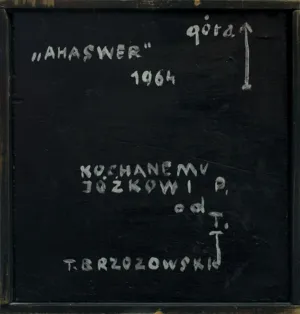 góra
„AHASWER"
1964
KOCHANEMU
JÓŻKOWI P.
od
T.
T. BRZOZOWSKI